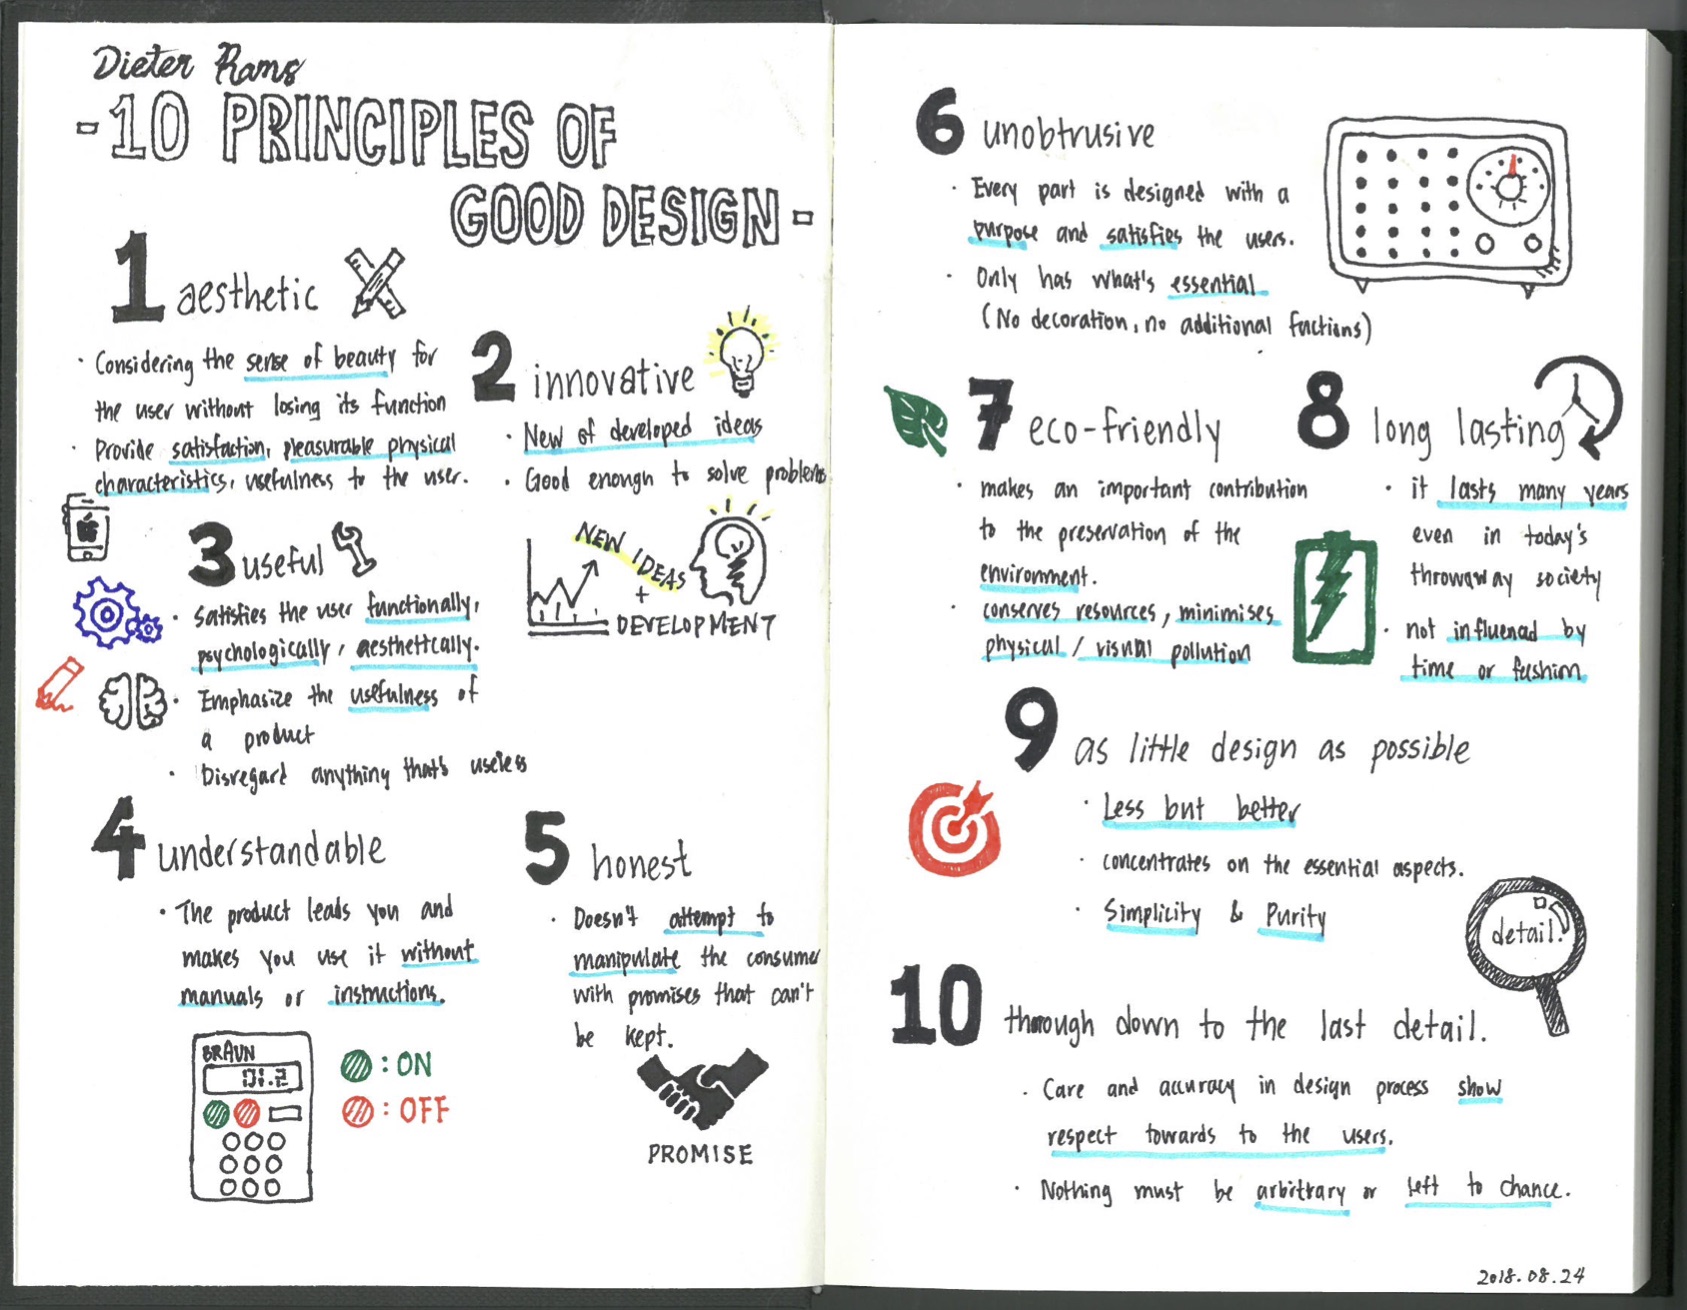 Dieter Rams
-10 PRINCIPLES OF
GOOD DESIGN-
1 aesthetic
· Considering the sense of beauty for
the user without losing its function
· Provide satisfaction, pleasurable physical
characteristics, usefulness to the user.
2 innovative
· New of developed ideas
· Good enough to solve problems
NEW IDEAS
+
DEVELOPMENT
3 useful
· Satisfies the user functionally,
psychologically, aesthetically.
· Emphasize the usefulness of
a product
· Disregard anything that's useless
4 understandable
· The product leads you and
makes you use it without
manuals or instructions.
BRAUN
01.2
: ON
: OFF
5 honest
· Doesn't attempt to
manipulate the consumer
with promises that can't
be kept.
PROMISE
6 unobtrusive
· Every part is designed with a
purpose and satisfies the users.
· Only has what's essential
(No decoration, no additional functions)
7 eco-friendly
· makes an important contribution
to the preservation of the
environment.
· conserves resources, minimises
physical / visual pollution
8 long lasting
· it lasts many years
even in today's
throwaway society
· not influenced by
time or fashion
9 as little design as possible
· Less but better
· concentrates on the essential aspects.
· Simplicity & Purity
detail.
10 thorough down to the last detail.
· Care and accuracy in design process show
respect towards to the users.
· Nothing must be arbitrary or left to chance.
2018.08.24